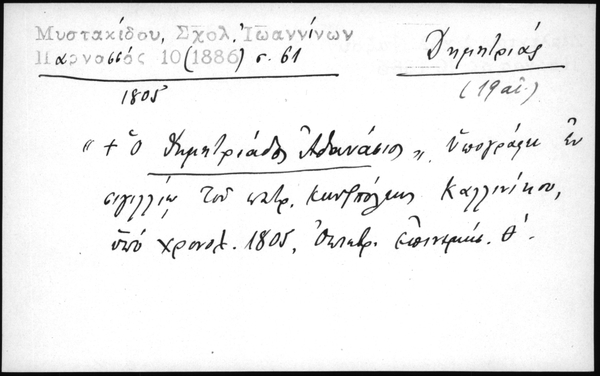 Μυστακίδου, Σχολ. Ἰωαννίνων
Παρνασσός 10 (1886) σ. 61
Δημητριάς
(19 αἰ.)
1805
"+ ὁ Δημητριάδος Ἀθανάσιος", ὑπογράφει ἐν
σιγιλλίῳ τοῦ πατρ. Κωνσ/πόλεως Καλλινίκου,
ὑπό χρονολ. 1805, Ὀκτωβρ. ἐπινεμήσ. θ΄.